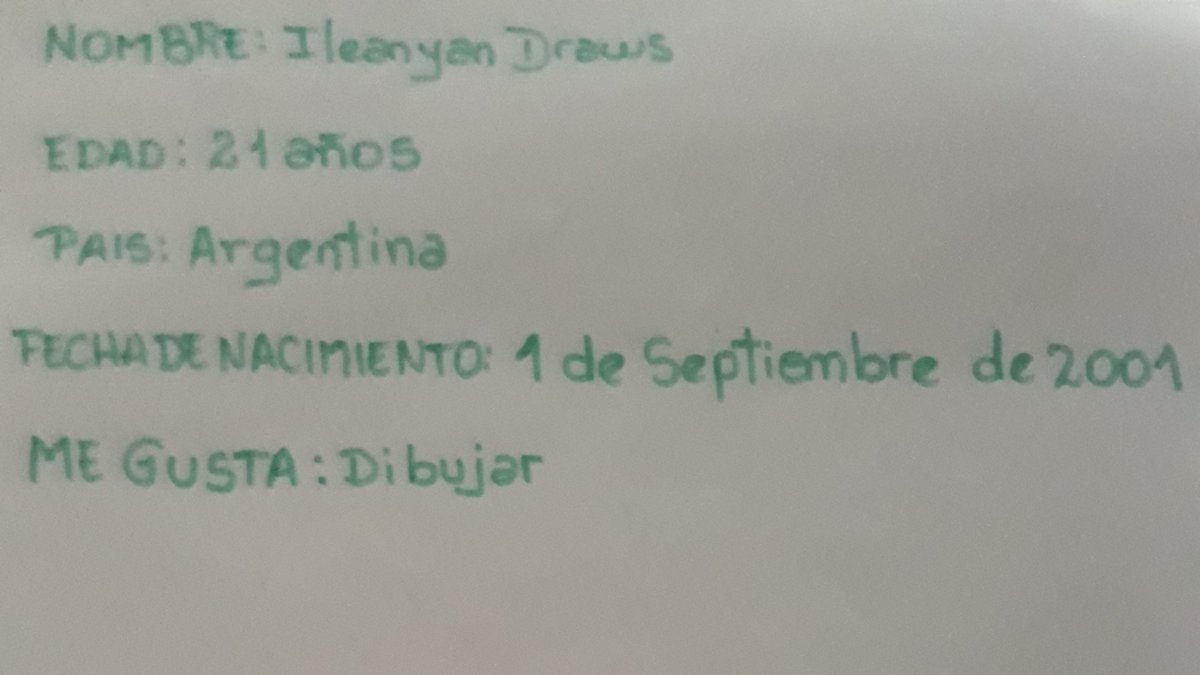 NOMBRE: Ileanyan Draws
EDAD: 21 años
PAIS: Argentina
FECHA DE NACIMIENTO: 1 de Septiembre de 2001
ME GUSTA: Dibujar